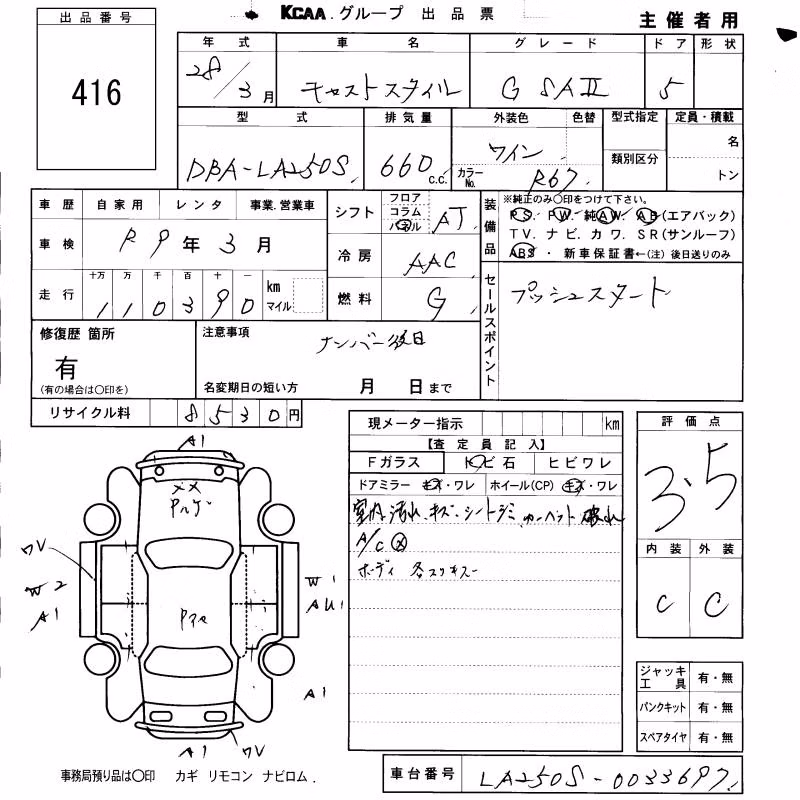 KCAA.グループ 出品票
主催者用
出品番号
416
年式 車名 グレード ドア 形状
28/3月 キャストスタイル G SAII 5
型式 排気量 外装色 色替 型式指定 定員・積載
DBA-LA250S 660 c.c. ワイン カラーNo. R67 類別区分 名
トン
車歴 自家用 レンタ 事業.営業車
車検 R9年3月
走行 十万 万 千 百 十 一
110390 km マイル
シフト フロア コラム パネル AT
冷房 AAC
燃料 G
装備品 ※純正のみ○印をつけて下さい。
PS. PW. 純AW. AB(エアバック)
TV. ナビ. カワ. SR(サンルーフ)
ABS・新車保証書←(注)後日送りのみ
セールスポイント
プッシュスタート
修復歴 箇所
有
(有の場合は○印を)
注意事項
ナンバー後日
名変期日の短い方 月 日まで
リサイクル料 8530円
現メーター指示 km
【査定員記入】
Fガラス トビ石 ヒビワレ
ドアミラー キズ・ワレ ホイール(CP) キズ・ワレ
室内汚れ.キズ.シートジミ.カーペット破れ
A/C
ボーディ 各スリキズ
評価点
3.5
内装 外装
C C
ジャッキ工具 有・無
パンクキット 有・無
スペアタイヤ 有・無
A1
メメ
Pハゲ
ワV
W2
A1
W1
AU1
A1
A1
ワV
事務局預り品は○印 カギ リモコン ナビロム.
車台番号 LA250S-0033697